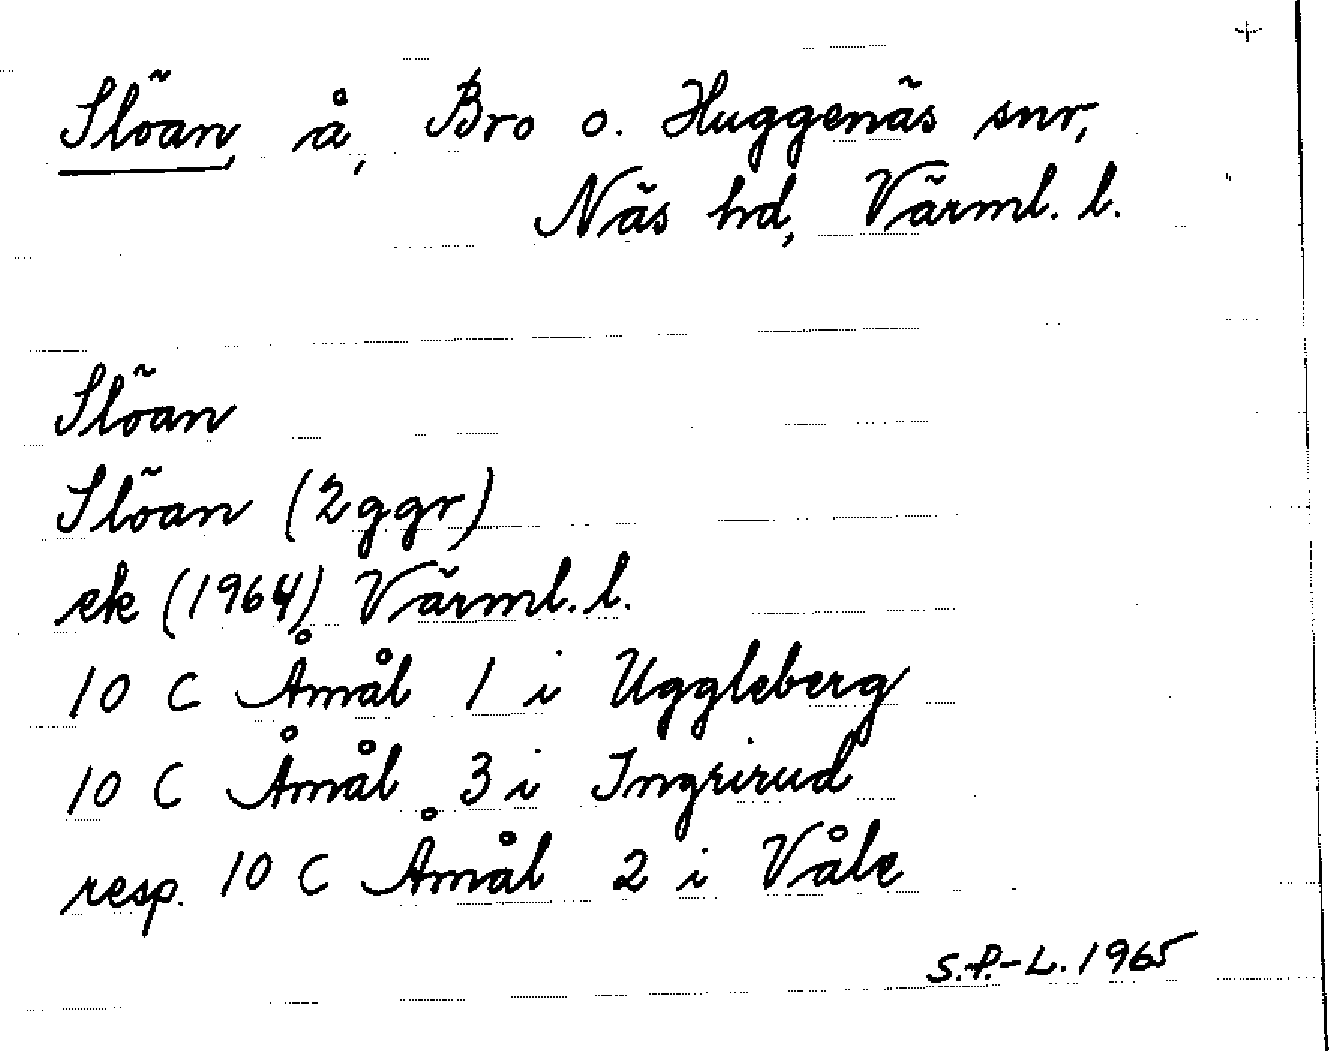 Slöan, å, Bro o. Huggenäs snr,
Näs hd, Värml. l.
Slöan
Slöan (2 ggr)
ek (1964) Värml. l.
10 C Åmål 1 i Uggleberg
10 C Åmål 3 i Ingrirud
resp. 10 C Åmål 2 i Våle
S.P.-L. 1965